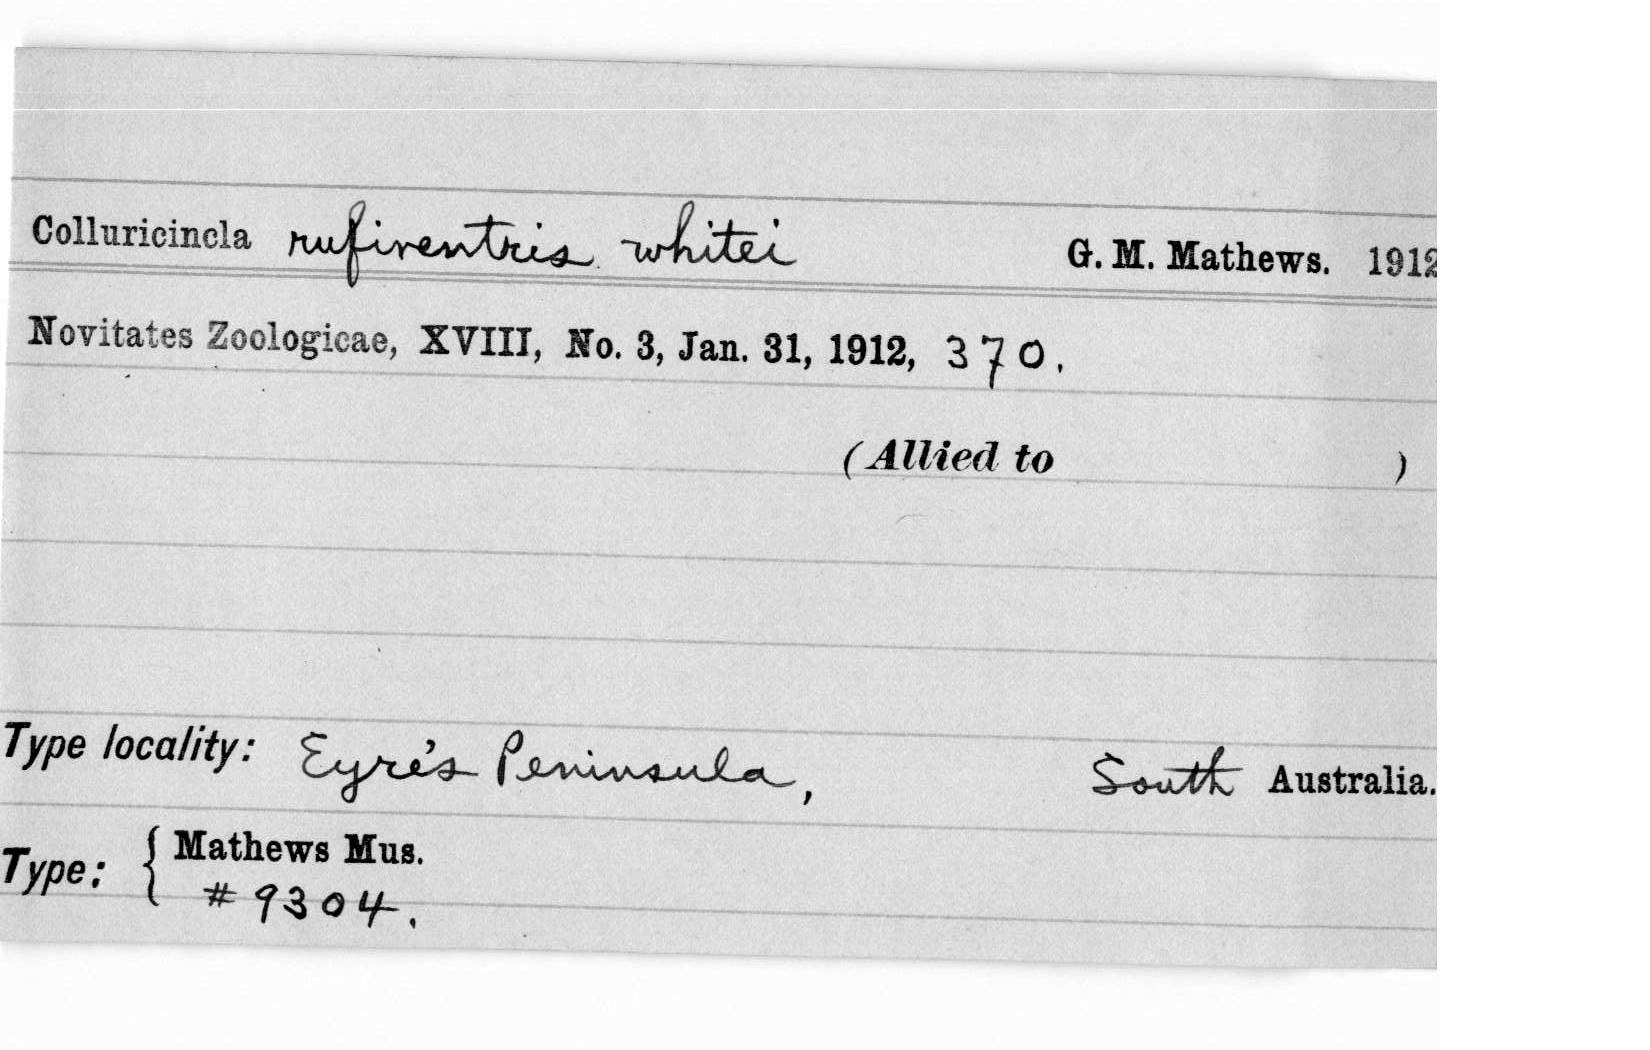 Colluricincla rufiventris whitei G. M. Mathews. 1912
Novitates Zoologicae, XVIII, No. 3, Jan. 31, 1912, 370.
(Allied to )
Type locality: Eyre's Peninsula, South Australia.
Type: { Mathews Mus.
#9304.